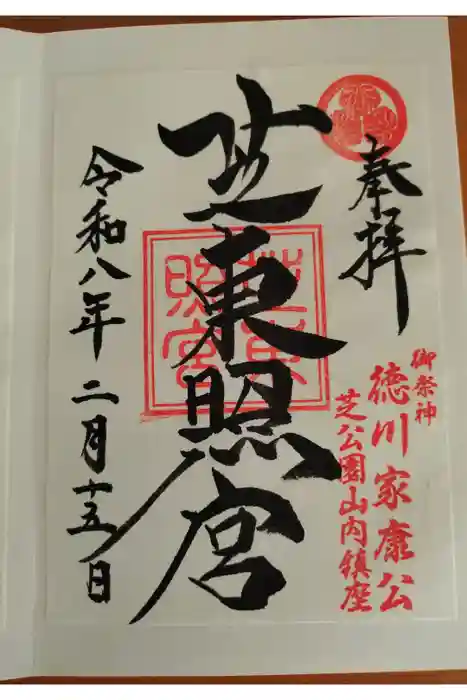 奉拝
御祭神
徳川家康公
芝公園山内鎮座
芝東照宮
芝東照宮
令和八年二月十五日